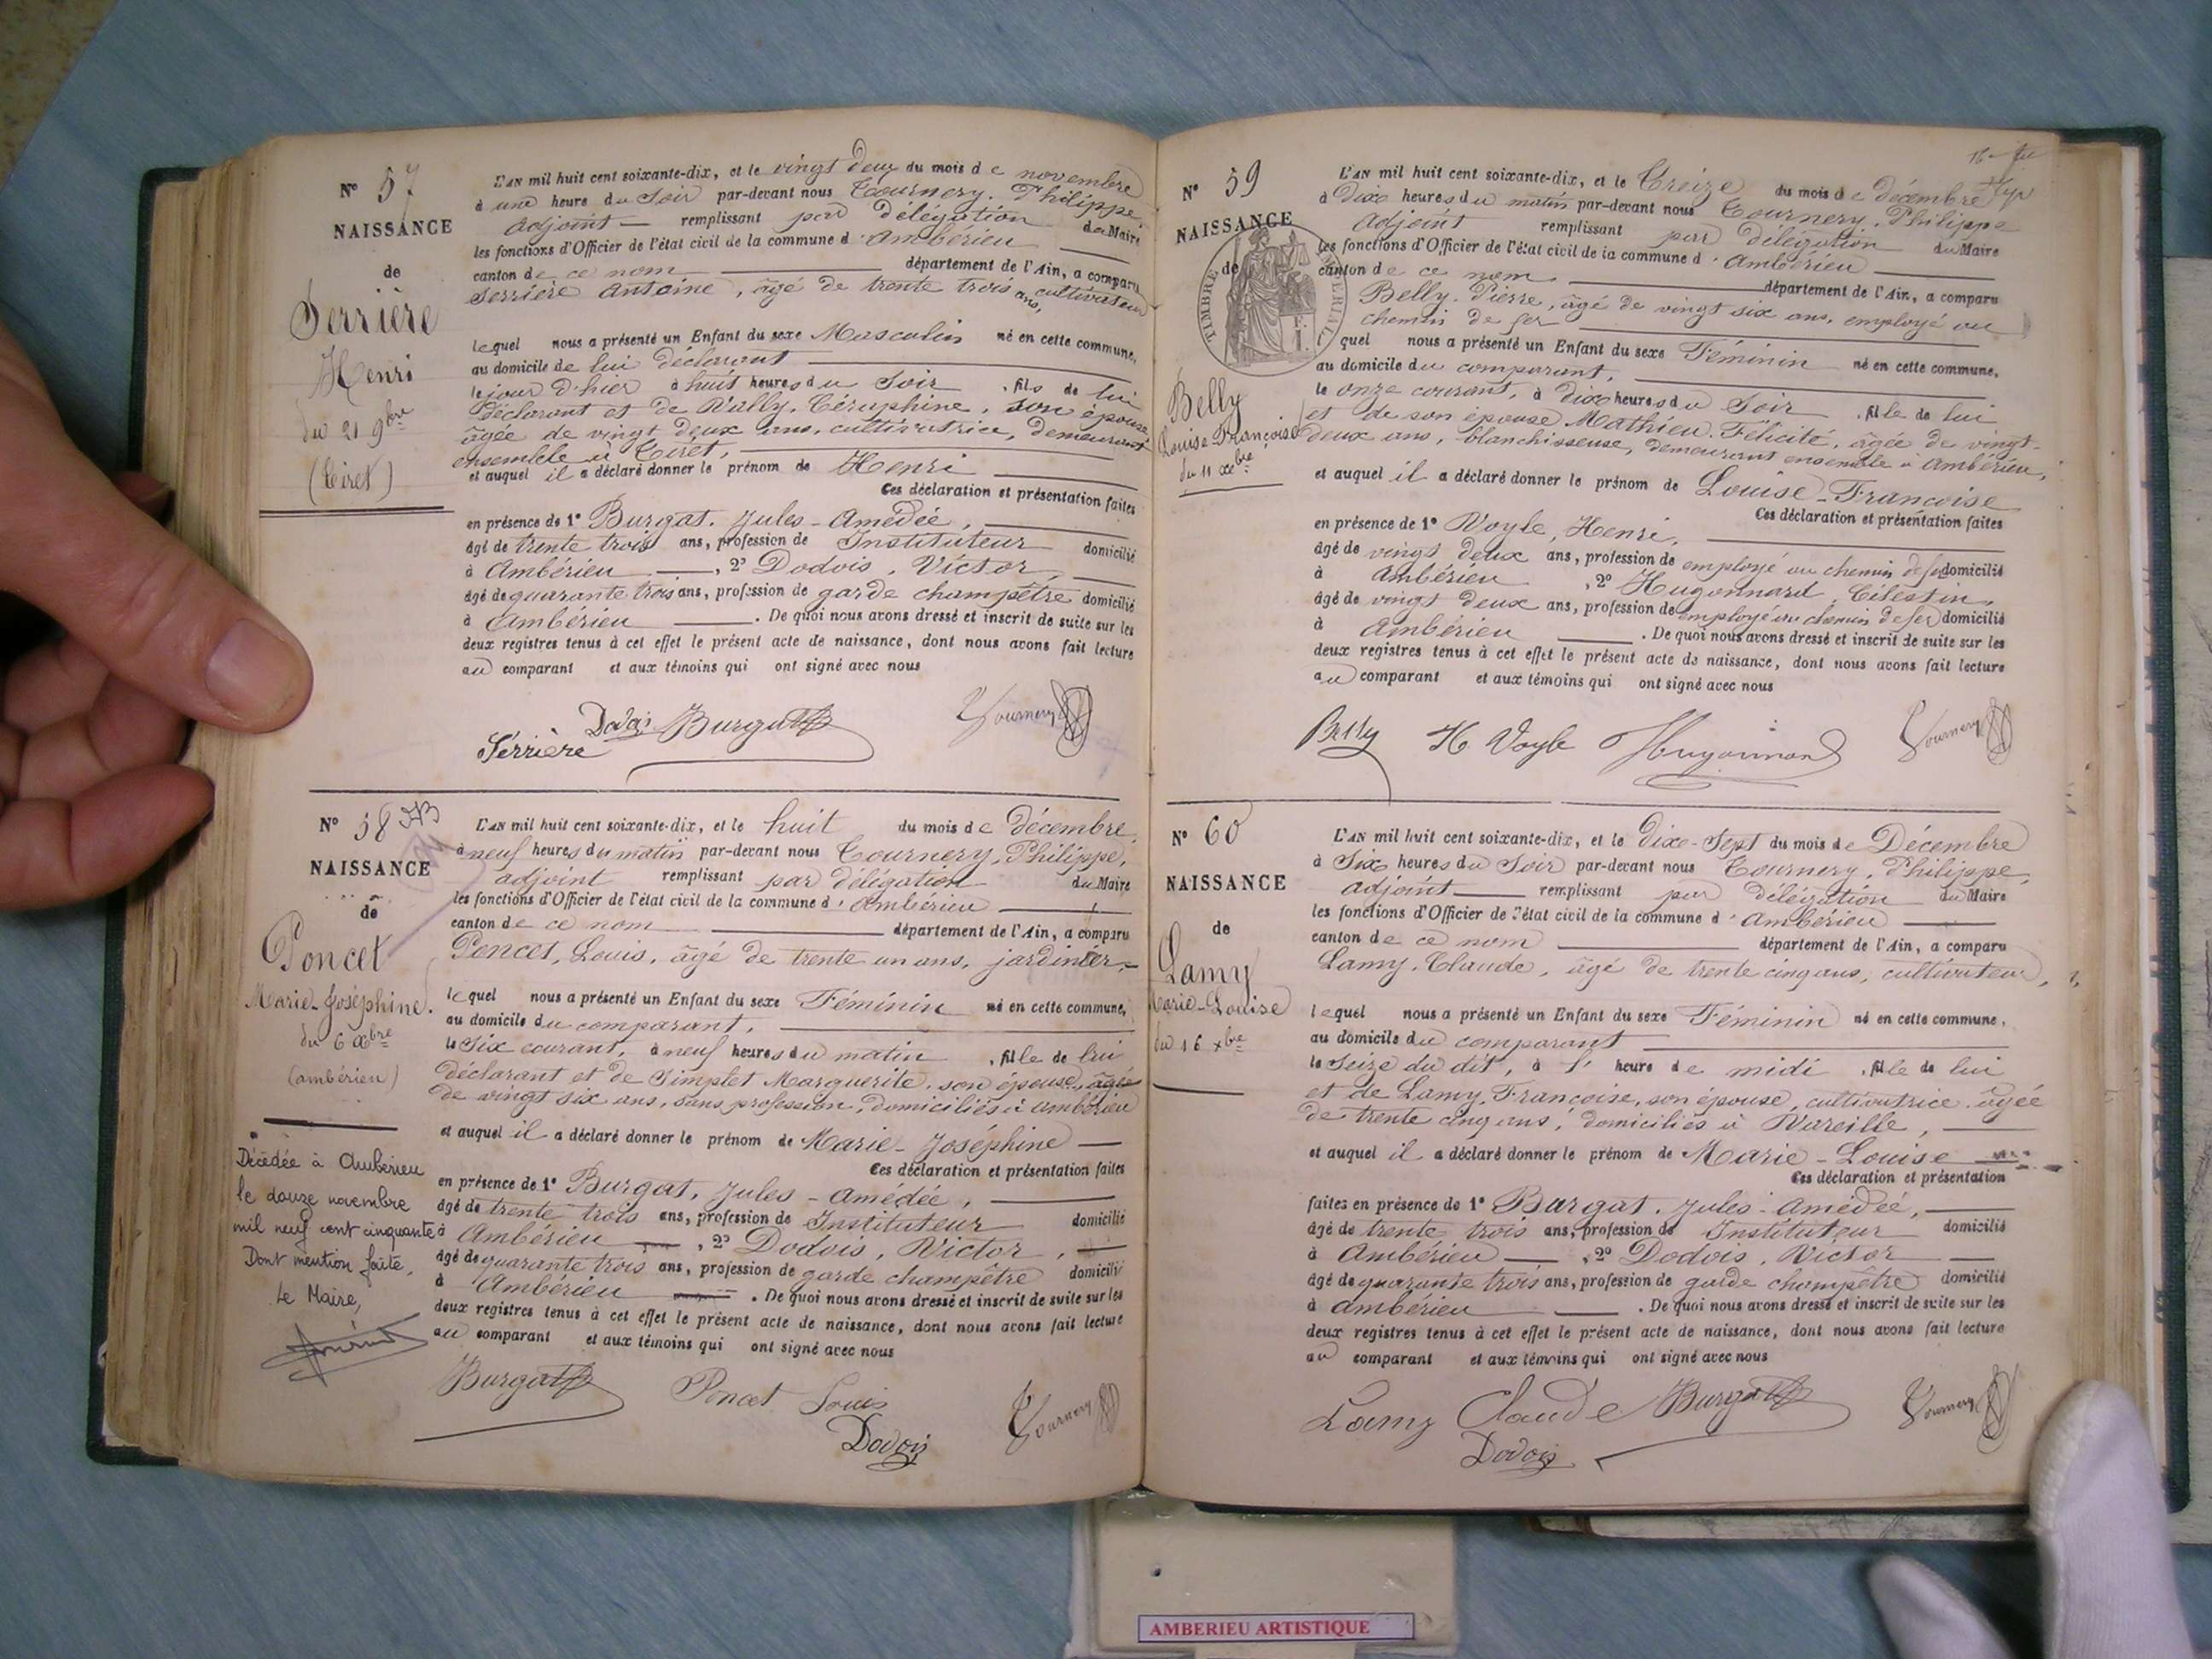 N° 57
NAISSANCE
de
Serrière
Henri
du 21 9bre
(Tiret)
L'AN mil huit cent soixante-dix, et le vingt deux du mois de novembre
à une heure du Soir par-devant nous Tournery, Philippe,
adjoint — remplissant par délégation du Maire
les fonctions d'Officier de l'état civil de la commune d'Ambérieu
canton de ce nom département de l'Ain, a comparu
Serrière Antoine, âgé de trente trois ans, cultivateur
lequel nous a présenté un Enfant du sexe Masculin né en cette commune,
au domicile de lui déclarant
le jour d'hier à huit heures du Soir, fils de lui
déclarant et de Vally, Céraphine, son épouse
âgée de vingt deux ans, cultivatrice, demeurant
ensemble à Tiret,
et auquel il a déclaré donner le prénom de Henri
Ces déclaration et présentation faites
en présence de 1° Burgat, Jules-Amédée,
âgé de trente trois ans, profession de Instituteur domicilié
à Ambérieu, 2° Dodois, Victor,
âgé de quarante trois ans, profession de garde champêtre domicilié
à Ambérieu. De quoi nous avons dressé et inscrit de suite sur les
deux registres tenus à cet effet le présent acte de naissance, dont nous avons fait lecture
au comparant et aux témoins qui ont signé avec nous
Serrière Dodois Burgat Tournery
N° 58
NAISSANCE
de
Poncet
Marie-Joséphine.
du 6 Xbre
(ambérieu)
Décédée à Ambérieu
le douze novembre
mil neuf cent cinquante
Dont mention faite,
Le Maire,
L'AN mil huit cent soixante-dix, et le huit du mois de décembre
à neuf heures du matin par-devant nous Tournery, Philippe,
adjoint remplissant par délégation du Maire
les fonctions d'Officier de l'état civil de la commune d'Ambérieu
canton de ce nom département de l'Ain, a comparu
Poncet, Louis, âgé de trente un ans, jardinier,
lequel nous a présenté un Enfant du sexe Féminin né en cette commune,
au domicile du comparant,
le Six courant, à neuf heures du matin, fille de lui
déclarant et de Simplet Marguerite, son épouse, âgée
de vingt six ans, sans profession, domiciliés à Ambérieu
et auquel il a déclaré donner le prénom de Marie-Joséphine
Ces déclaration et présentation faites
en présence de 1° Burgat, Jules-Amédée,
âgé de trente trois ans, profession de Instituteur domicilié
à Ambérieu, 2° Dodois, Victor,
âgé de quarante trois ans, profession de garde champêtre domicilié
à Ambérieu. De quoi nous avons dressé et inscrit de suite sur les
deux registres tenus à cet effet le présent acte de naissance, dont nous avons fait lecture
au comparant et aux témoins qui ont signé avec nous
Burgat Poncet Louis Tournery
Dodois
N° 59
NAISSANCE
de
TIMBRE IMPERIAL
Belly
Louise Françoise
du 11 Xbre
L'AN mil huit cent soixante-dix, et le Treize du mois de décembre
à Dix heures du matin par-devant nous Tournery, Philippe
adjoint remplissant par délégation du Maire
les fonctions d'Officier de l'état civil de la commune d'Ambérieu
canton de ce nom département de l'Ain, a comparu
Belly, Pierre, âgé de vingt six ans, employé au
chemin de fer
lequel nous a présenté un Enfant du sexe Féminin né en cette commune,
au domicile du comparant,
le onze courant, à dix heures du Soir, fille de lui
et de son épouse Mathieu, Félicité, âgée de vingt-
deux ans, blanchisseuse, demeurant ensemble à Ambérieu,
et auquel il a déclaré donner le prénom de Louise-Françoise
Ces déclaration et présentation faites
en présence de 1° Voyle, Henri,
âgé de vingt deux ans, profession de employé au chemin de fer domicilié
à Ambérieu, 2° Hugonnard, Célestin,
âgé de vingt deux ans, profession de employé au chemin de fer domicilié
à Ambérieu. De quoi nous avons dressé et inscrit de suite sur les
deux registres tenus à cet effet le présent acte de naissance, dont nous avons fait lecture
au comparant et aux témoins qui ont signé avec nous
Belly H Voyle Hugonnard Tournery
N° 60
NAISSANCE
de
Lamy
Marie-Louise
du 16 Xbre
L'AN mil huit cent soixante-dix, et le Dix-Sept du mois de Décembre
à Six heures du Soir par-devant nous Tournery, Philippe,
adjoint remplissant par délégation du Maire
les fonctions d'Officier de l'état civil de la commune d'Ambérieu
canton de ce nom département de l'Ain, a comparu
Lamy, Claude, âgé de trente cinq ans, cultivateur,
lequel nous a présenté un Enfant du sexe Féminin né en cette commune,
au domicile du comparant
le Seize du dit, à l'heure de midi, fille de lui
et de Lamy, Françoise, son épouse, cultivatrice, âgée
de trente cinq ans, domiciliés à Vareille,
et auquel il a déclaré donner le prénom de Marie-Louise
Ces déclaration et présentation
faites en présence de 1° Burgat, Jules-Amédée,
âgé de trente trois ans, profession de Instituteur domicilié
à Ambérieu, 2° Dodois, Victor
âgé de quarante trois ans, profession de garde champêtre domicilié
à ambérieu. De quoi nous avons dressé et inscrit de suite sur les
deux registres tenus à cet effet le présent acte de naissance, dont nous avons fait lecture
au comparant et aux témoins qui ont signé avec nous
Lamy Claude Burgat Tournery
Dodois
AMBERIEU ARTISTIQUE